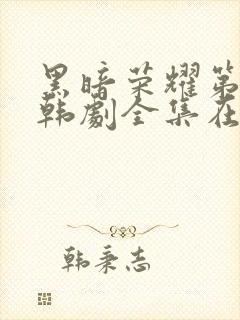 黑暗荣耀第
韩劇全集在
韩秉志